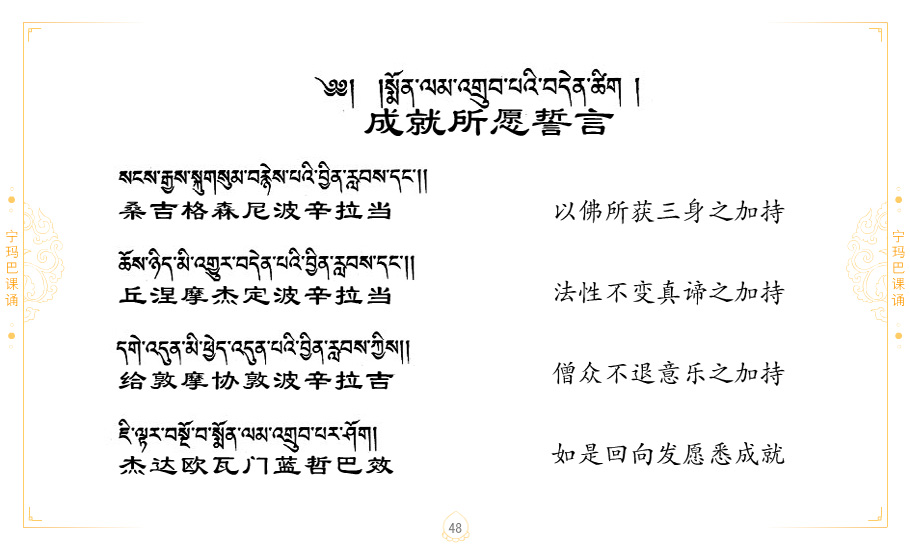 ༄༅། །སྨོན་ལམ་འགྲུབ་པའི་བདེན་ཚིག །
成就所愿誓言
སངས་རྒྱས་སྐུ་གསུམ་བརྙེས་པའི་བྱིན་རླབས་དང་།།
桑吉格森尼波辛拉当
以佛所获三身之加持
ཆོས་ཉིད་མི་འགྱུར་བདེན་པའི་བྱིན་རླབས་དང་།།
丘涅摩杰定波辛拉当
法性不变真谛之加持
དགེ་འདུན་མི་ཕྱེད་འདུན་པའི་བྱིན་རླབས་ཀྱིས།།
给敦摩协敦波辛拉吉
僧众不退意乐之加持
ཇི་ལྟར་བསྔོ་བ་སྨོན་ལམ་འགྲུབ་པར་ཤོག།
杰达欧瓦门蓝哲巴效
如是回向发愿悉成就
宁玛巴课诵
宁玛巴课诵
48